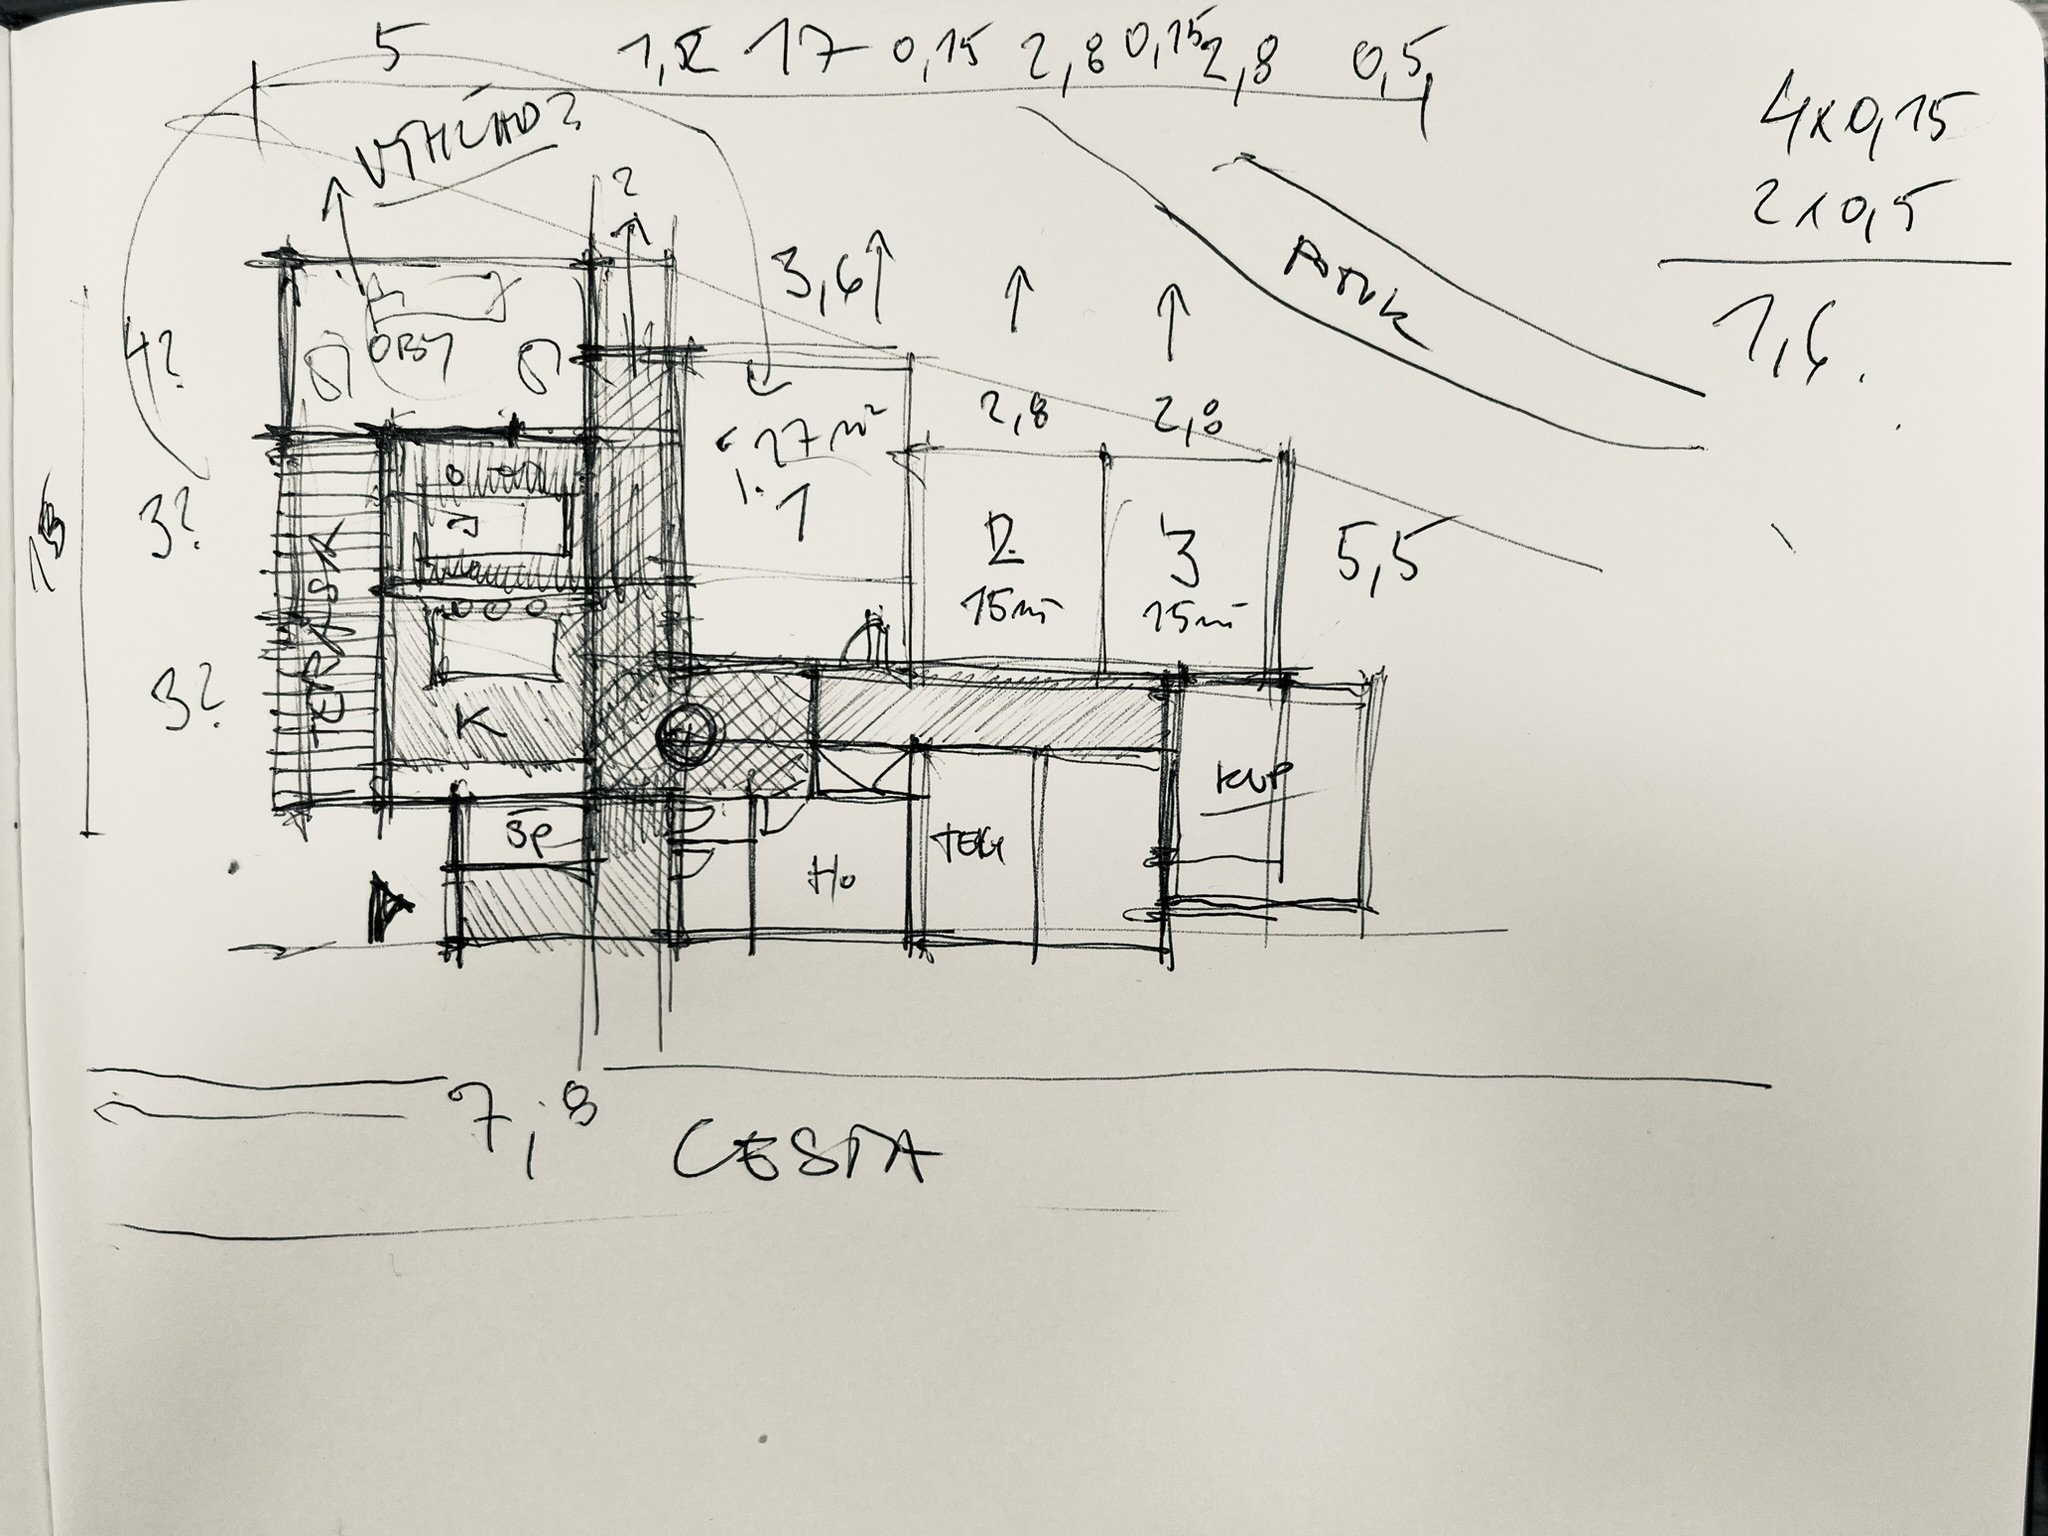 5 1,2 17 0,15 2,8 0,15 2,8 0,5
4x0,15
2x0,5
1,6
VÝHLED?
?
3,6
POTOK
4?
OBÝ
17m²
2,8
2,8
1
3?
J
2
3
5,5
TERASA
15m²
15m²
3?
K
KUP
SP
HO
TECH
7,8
CESTA